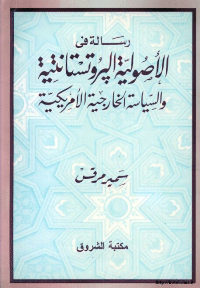 رسالة في
الأصولية البروتستانتية
والسياسة الخارجية الأمريكية
سمير مرقس
مكتبة الشروق